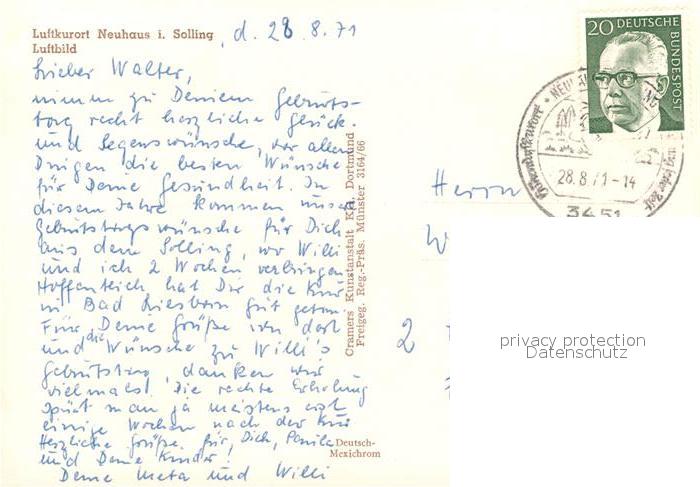 Luftkurort Neuhaus i. Solling
Luftbild
, d. 28. 8. 71
Lieber Walter,
nimm zu Deinem Geburts-
tag recht herzliche Glück-
und Segenswünsche, vor allen
Dingen die besten Wünsche
für Deine Gesundheit. In
diesem Jahre kommen unsere
Geburtstagswünsche für Dich
aus dem Solling, wo Willi
und ich 2 Wochen verbringen
Hoffentlich hat Dir die Kur
in Bad Liesborn gut getan
Für Deine Grüße von dort
und die Wünsche zu Willi's
Geburtstag danken wir
vielmals! Die rechte Erholung
spürt man ja meistens erst
einige Wochen nach der Kur
Herzliche Grüße für Dich,
und Deine Kinder!
Deine Meta und Willi
Cramers Kunstanstalt KG. Dortmund
Freigeg. Reg.-Präs. Münster 3164/66
Deutsch-
Mexichrom
20 DEUTSCHE
BUNDESPOST
28.8.71-14
3451
Herrn
W
2
privacy protection
Datenschutz